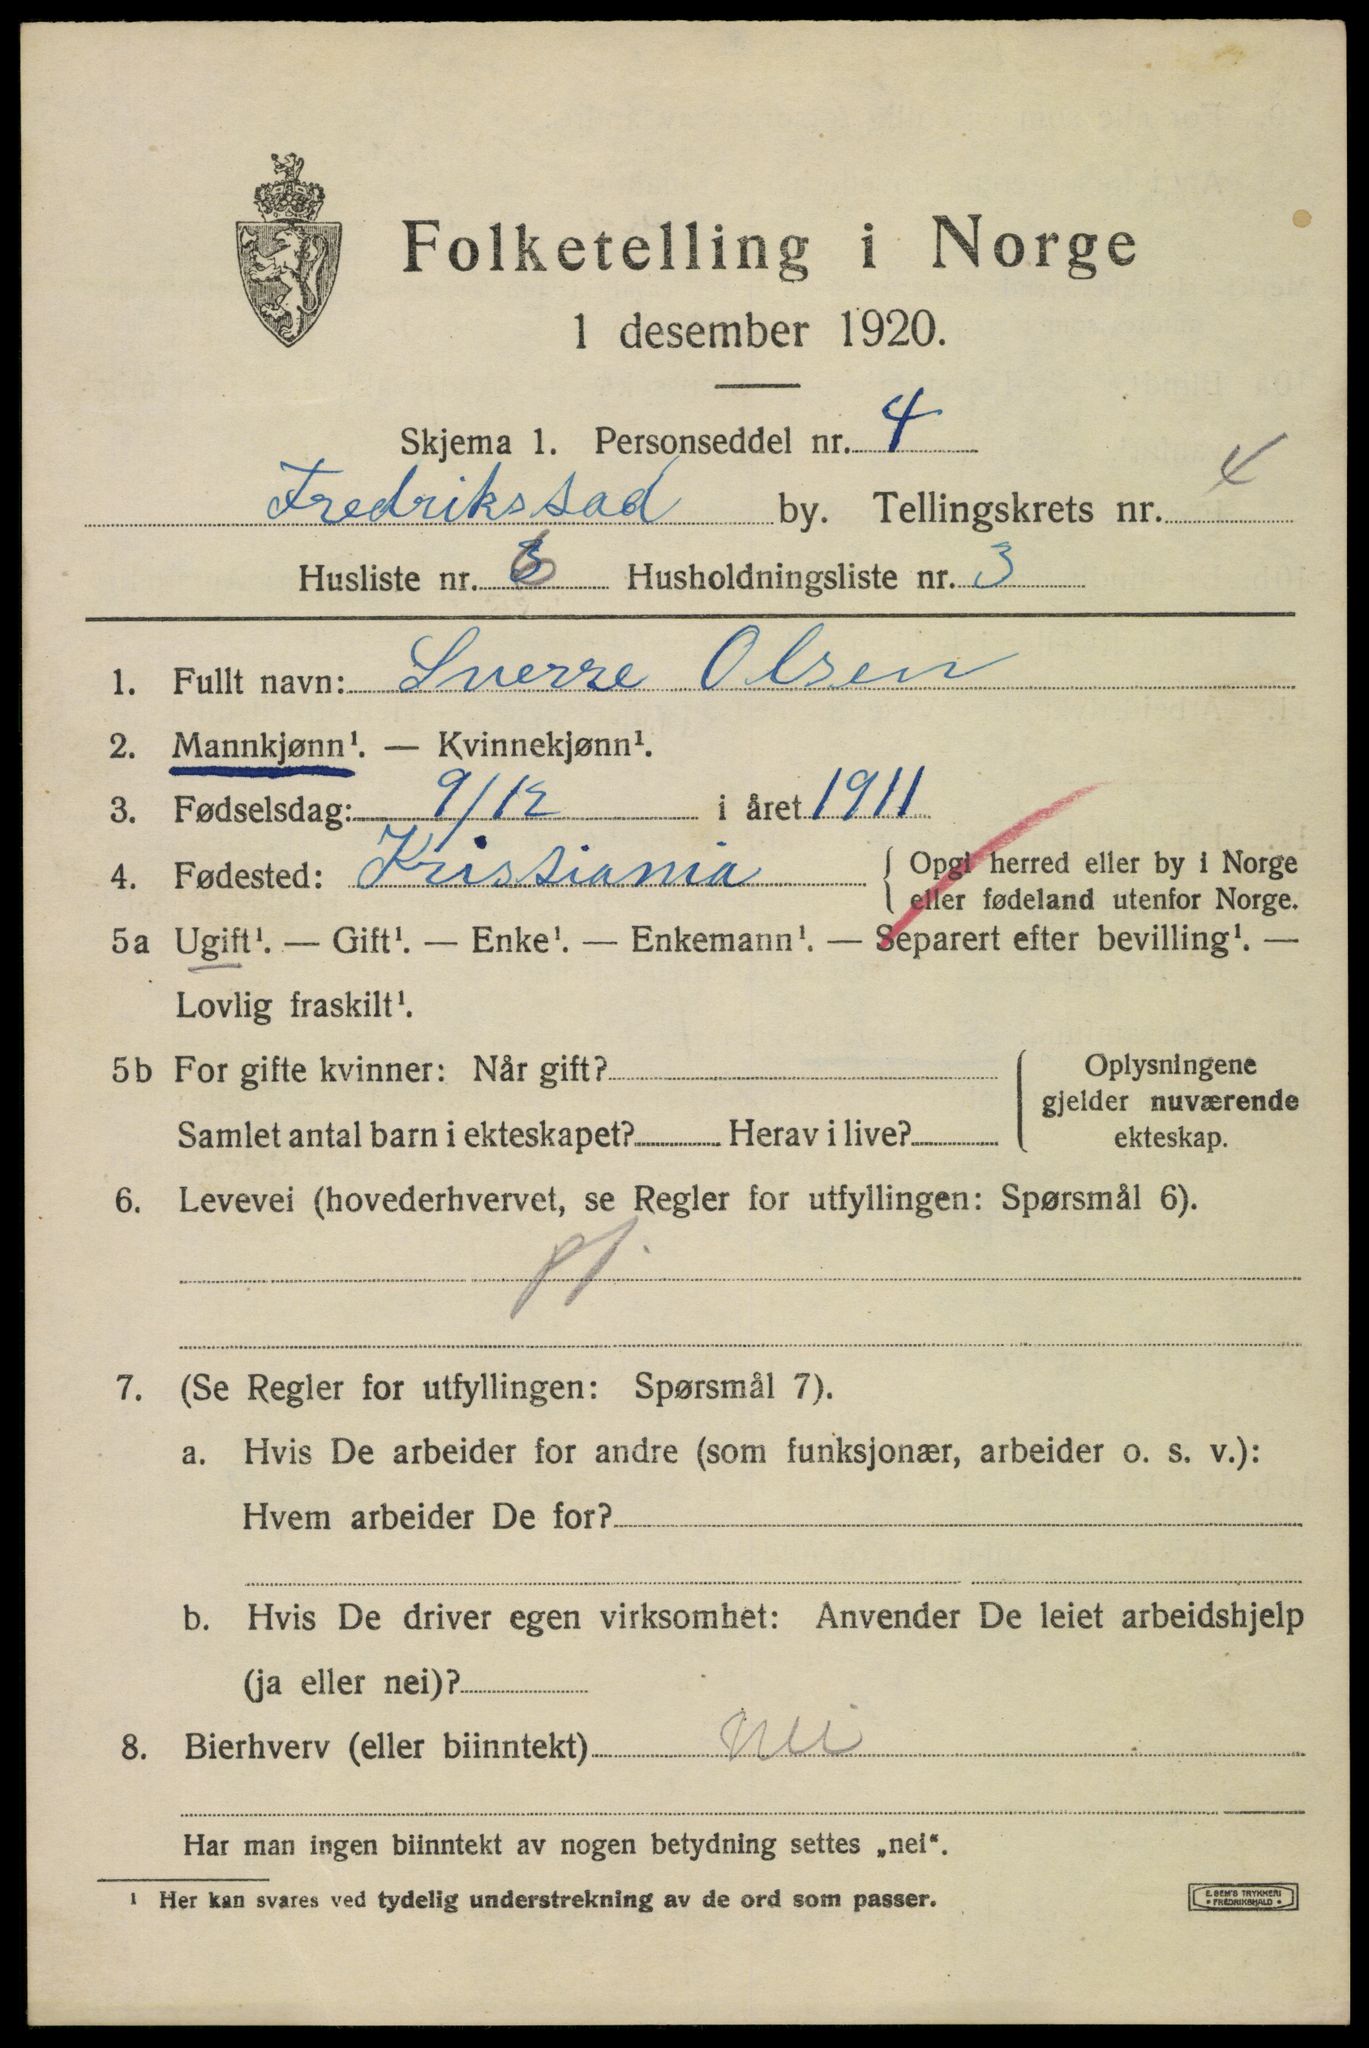 Folketelling i Norge
1 desember 1920.
Skjema 1. Personseddel nr. 4
Fredrikstad by. Tellingskrets nr. 4
Husliste nr. 6 Husholdningsliste nr. 3
1. Fullt navn: Sverre Olsen
2. Mannkjønn¹. — Kvinnekjønn¹.
3. Fødselsdag: 9/12 i året 1911
4. Fødested: Kristiania { Opgi herred eller by i Norge
eller fødeland utenfor Norge.
5a Ugift¹. — Gift¹. — Enke¹. — Enkemann¹. — Separert efter bevilling¹. —
Lovlig fraskilt¹.
5b For gifte kvinner: Når gift?
Samlet antal barn i ekteskapet? Herav i live?
Oplysningene
gjelder nuværende
ekteskap.
6. Levevei (hovederhvervet, se Regler for utfyllingen: Spørsmål 6).
7. (Se Regler for utfyllingen: Spørsmål 7).
a. Hvis De arbeider for andre (som funksjonær, arbeider o. s. v.):
Hvem arbeider De for?
b. Hvis De driver egen virksomhet: Anvender De leiet arbeidshjelp
(ja eller nei)?
8. Bierhverv (eller biinntekt) nei
Har man ingen biinntekt av nogen betydning settes „nei“.
¹ Her kan svares ved tydelig understrekning av de ord som passer.
E. SEM'S TRYKKERI
• FREDRIKSHALD •